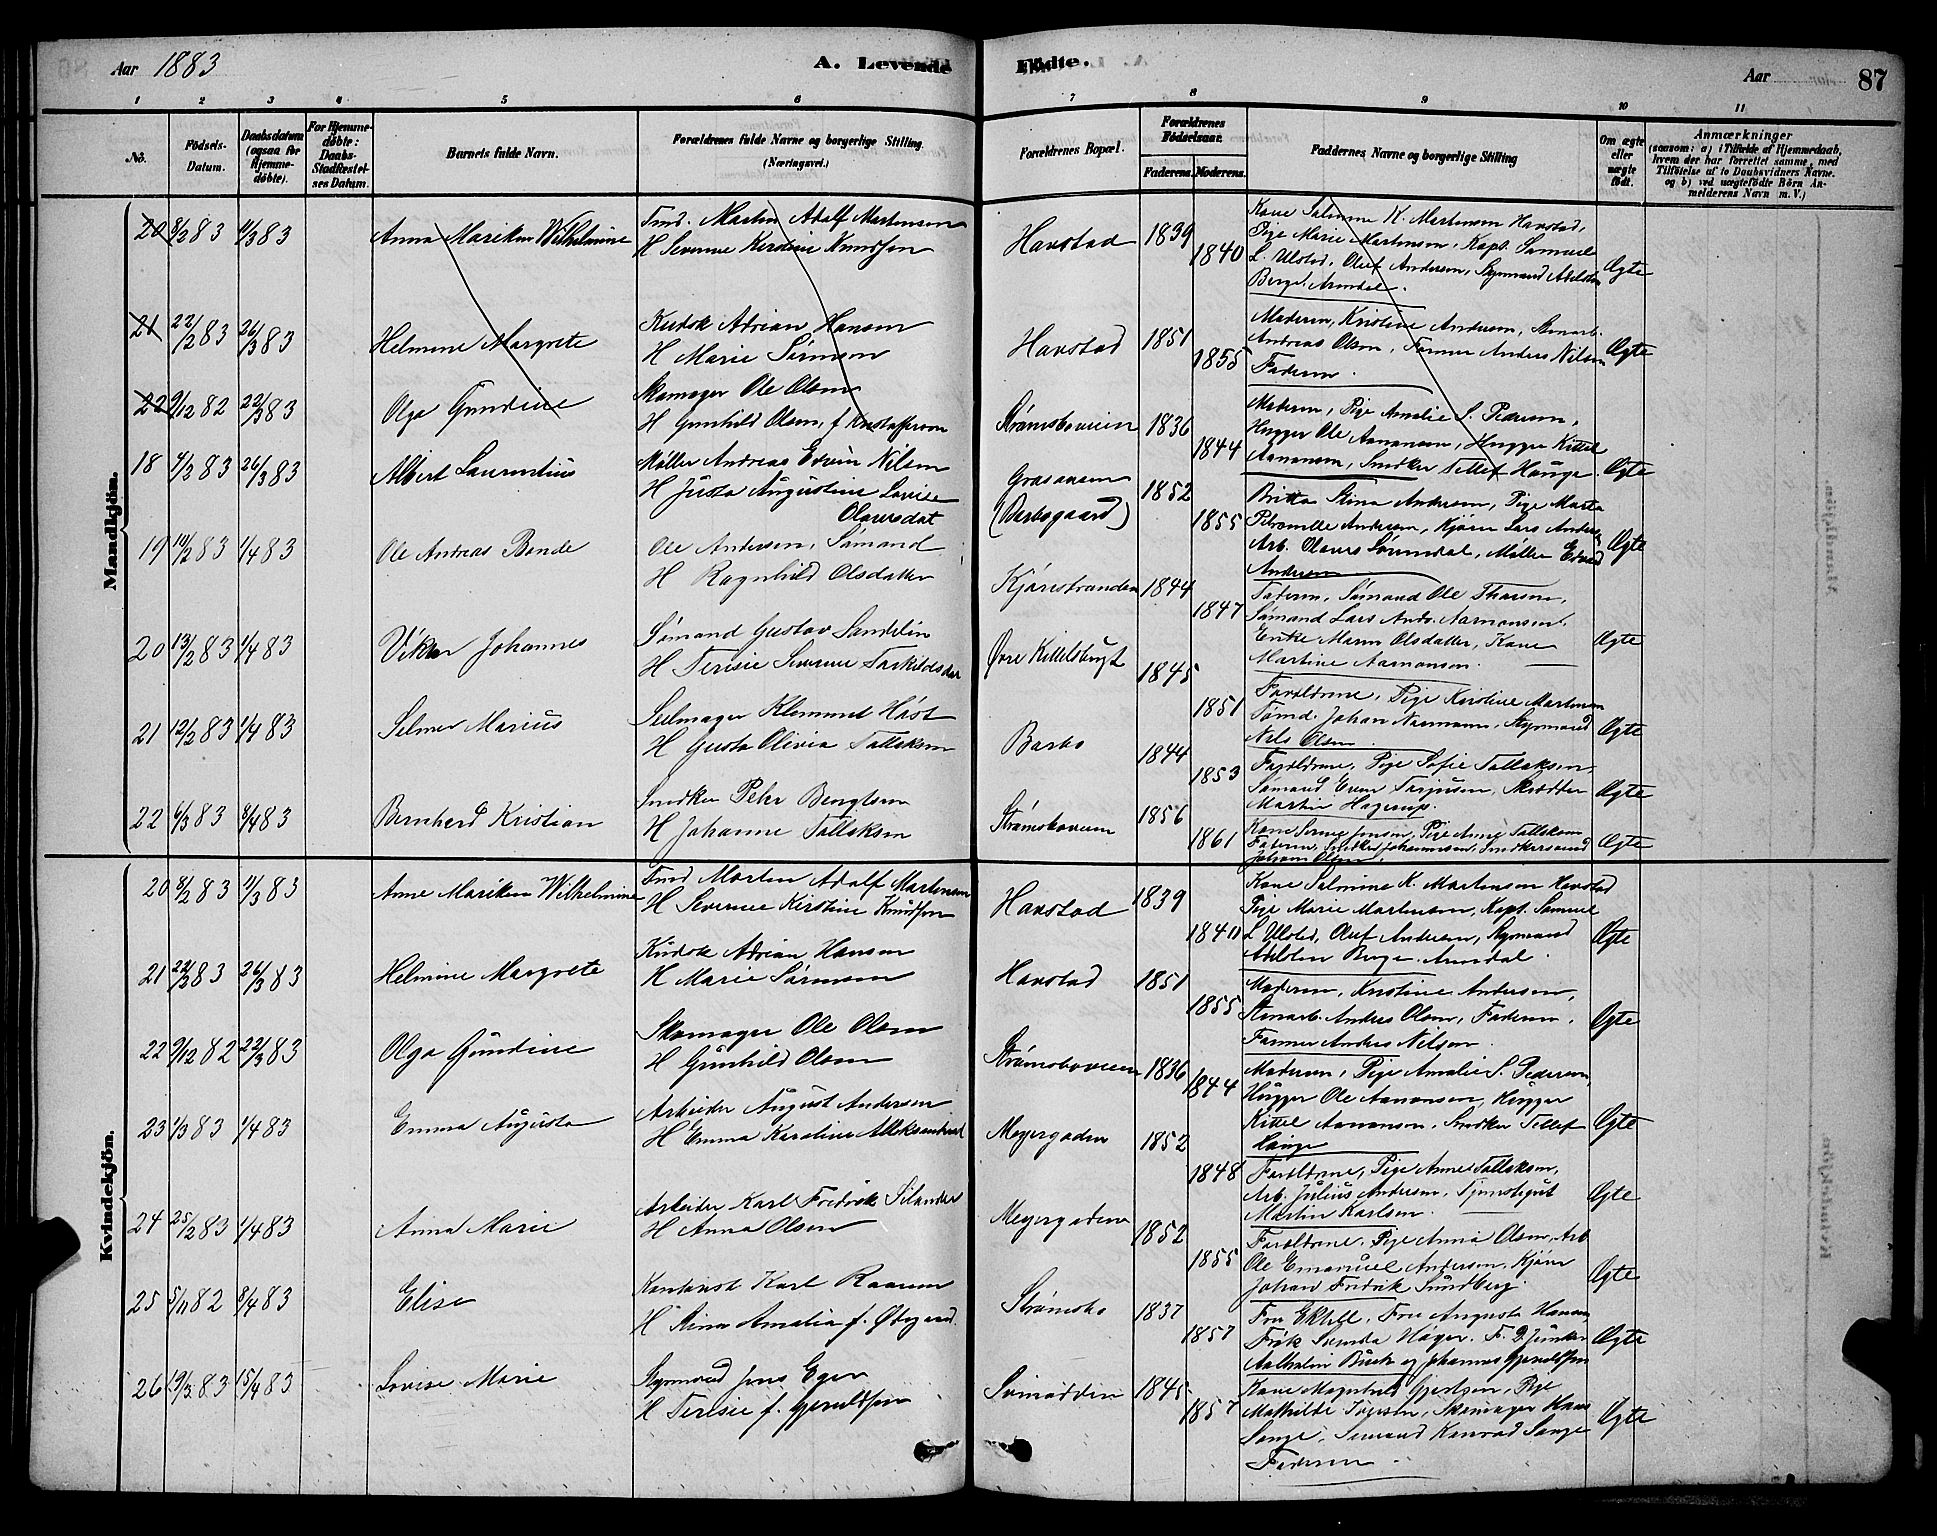 Aar 1883
A. Levende Fødte.
Aar
87
1 2 3 4 5 6 7 8 9 10 11
No.
Fødsels-Datum.
Daabsdatum (ogsaa for Hjemme-døbte).
For Hjemme-døbte: Daabs-Stadfæstel-ses Datum.
Barnets fulde Navn.
Forældrenes fulde Navne og borgerlige Stilling. (Næringsvei.)
Forældrenes Bopæl.
Forældrenes Fødselsaar.
Faderens. Moderens.
Faddernes Navne og borgerlige Stilling
Om ægte eller uægte født.
Anmærkninger
(saasom: a) i Tilfælde af Hjemmedaab,
hvem der har forrettet samme, med
Tilføielse af to Daabsvidners Navne.
og b) ved uægtefødte Børn An-
melderens Navn m. V.)
Mandkjön.
20 8/2 83 11/3 83 Anna Mariken Wilhelmine
Tmd. Martin Adolf Martensen
H Severine Kirstine Knudsen
Havstad 1839 1840
Kone Salmine K. Martensen Havstad,
Pige Marie Martensen, Kapt. Samuel
L. Ulstad, Oluf Andersen, Styrmand Adelsten
Berge. Arendal.
Ægte
21 22/2 83 26/3 83 Helmine Margrete
Kudsk Adrian Hansen
H Marie Sørensen
Havstad 1851 1855
Moderen, Kristine Andersen, Stenarb.
Andreas Olsen, Farmer Anders Nilsen
Faderen.
Ægte
22 9/12 82 22/3 83 Olga Gundine
Skomager Ole Olsen
H Gunhild Olsen, f. Kristoffersen
Strømsboveien 1836 1844
Moderen, Pige Amalie S. Pedersen,
Hugger Ole Aanonsen, Hugger Kittel
Aanonsen, Snedker Tellef Hauge
Ægte
18 4/2 83 26/3 83 Albert Laurentius
Møller Andreas Edvin Nilsen
H Justa Augustine Lovise
Olavesdat
Græsannen
(Barbogaard) 1852 1855
Britta Stina Andersen, Pige Marta
Petronille Andersen, Kjører Lars Anders
Arb. Olaves Sørendal, Møller Edvard
Andersen
Ægte
19 10/2 83 1/4 83 Ole Andreas Bonde
Ole Andersen, Sømand
H Ragnhild Olsdatter
Kjønstranden 1844 1847
Faderen, Sømand Ole Tharsen,
Sømand Lars Andr. Aamonsen,
Enke Maren Olsdatter, Kone
Martine Aamonsen.
Ægte
20 13/2 83 1/4 83 Viktor Johannes
Sømand Gustav Sandelin
H Terisie Severine Tarkildsdat
Øvre Kittelsbugt 1845 1851
Forældrene, Pige Kirstine Martensen
Tømd. Johan Naemann, Styrmand
Nils Olsen.
Ægte
21 12/2 83 1/4 83 Selmer Marius
Seilmager Klement Høst
H Gusta Olivia Tallaksen
Barbo 1844 1853
Forældrene, Pige Sofie Tallaksen,
Sømand Even Terjusen, Skrædder
Martin Hagerup.
Ægte
22 6/3 83 8/4 83 Bernhard Kristian
Snedker Pehr Bengtsen
H Johanne Tallaksen
Strømsboveien 1856 1861
Kone Serine Jensen, Pige Anne Tallaksen
Faderen, Snedker Johannesen, Snedkersvend
Johan Olsen.
Ægte
Kvindekjön.
20 8/2 83 11/3 83 Anne Mariken Wilhelmine
Tmd Morten Adolf Martensen
H Severine Kerstine Knudsen
Havstad 1839 1840
Kone Salmine K. Martensen Havstad
Pige Marie Martensen, Kapt. Samuel
L Ulstad, Oluf Andersen, Styrmand
Adelsten Berge. Arendal.
Ægte
21 22/2 83 26/3 83 Helmine Margrete
Kudsk Adrian Hansen
H Marie Sørensen
Havstad 1851 1855
Moderen, Kristine Andersen,
Stenarb. Anders Olsen, Faderen,
Farmer Anders Nilsen
Ægte
22 9/12 82 22/3 83 Olga Gundine
Skomager Ole Olsen
H Gunhild Olsen
Strømsboveien 1836 1844
Moderen, Pige Amalie S. Pedersen,
Hugger Ole Aanonsen, Hugger
Kittel Aanonsen, Snedker Tellef
Hauge
Ægte
23 1/3 83 1/4 83 Emma Augusta
Arbeider August Andersen
H Emma Karoline Alleksandersd
Meyergaden 1852 1848
Forældrene, Pige Anne Tallaksen,
Arb. Julius Andersen, Tjenestegut
Martin Karlsen.
Ægte
24 25/2 83 1/4 83 Anna Marie
Arbeider Karl Fredrik Silander
H Anna Olsen
Meyergaden 1852 1855
Forældrene, Pige Anna Olsen, Arb
Ole Emanuel Andersen, Kjører
Johan Fredrik Sundberg.
Ægte
25 5/11 82 8/4 83 Elise
Kontorist Karl Raaum
H Stina Amalia f. Ødegaard
Strømsbo 1837 1857
Fru Ektell, Fru Augusta Hansen,
Frøk Svenda Høyer. F. D. Junker
Aalholm Buch og Johannes Gjeruldsen
Ægte
26 19/3 83 15/4 83 Lovise Marie
Styrmand Jens Eger
H Terisie f. Gjeruldsen
Svinodden 1845 1857
Kone Magnhild Gjertsen, Pige
Mathilde Iversen, Skomager Hans
Lange, Sømand Konrad Lange
Faderen
Ægte